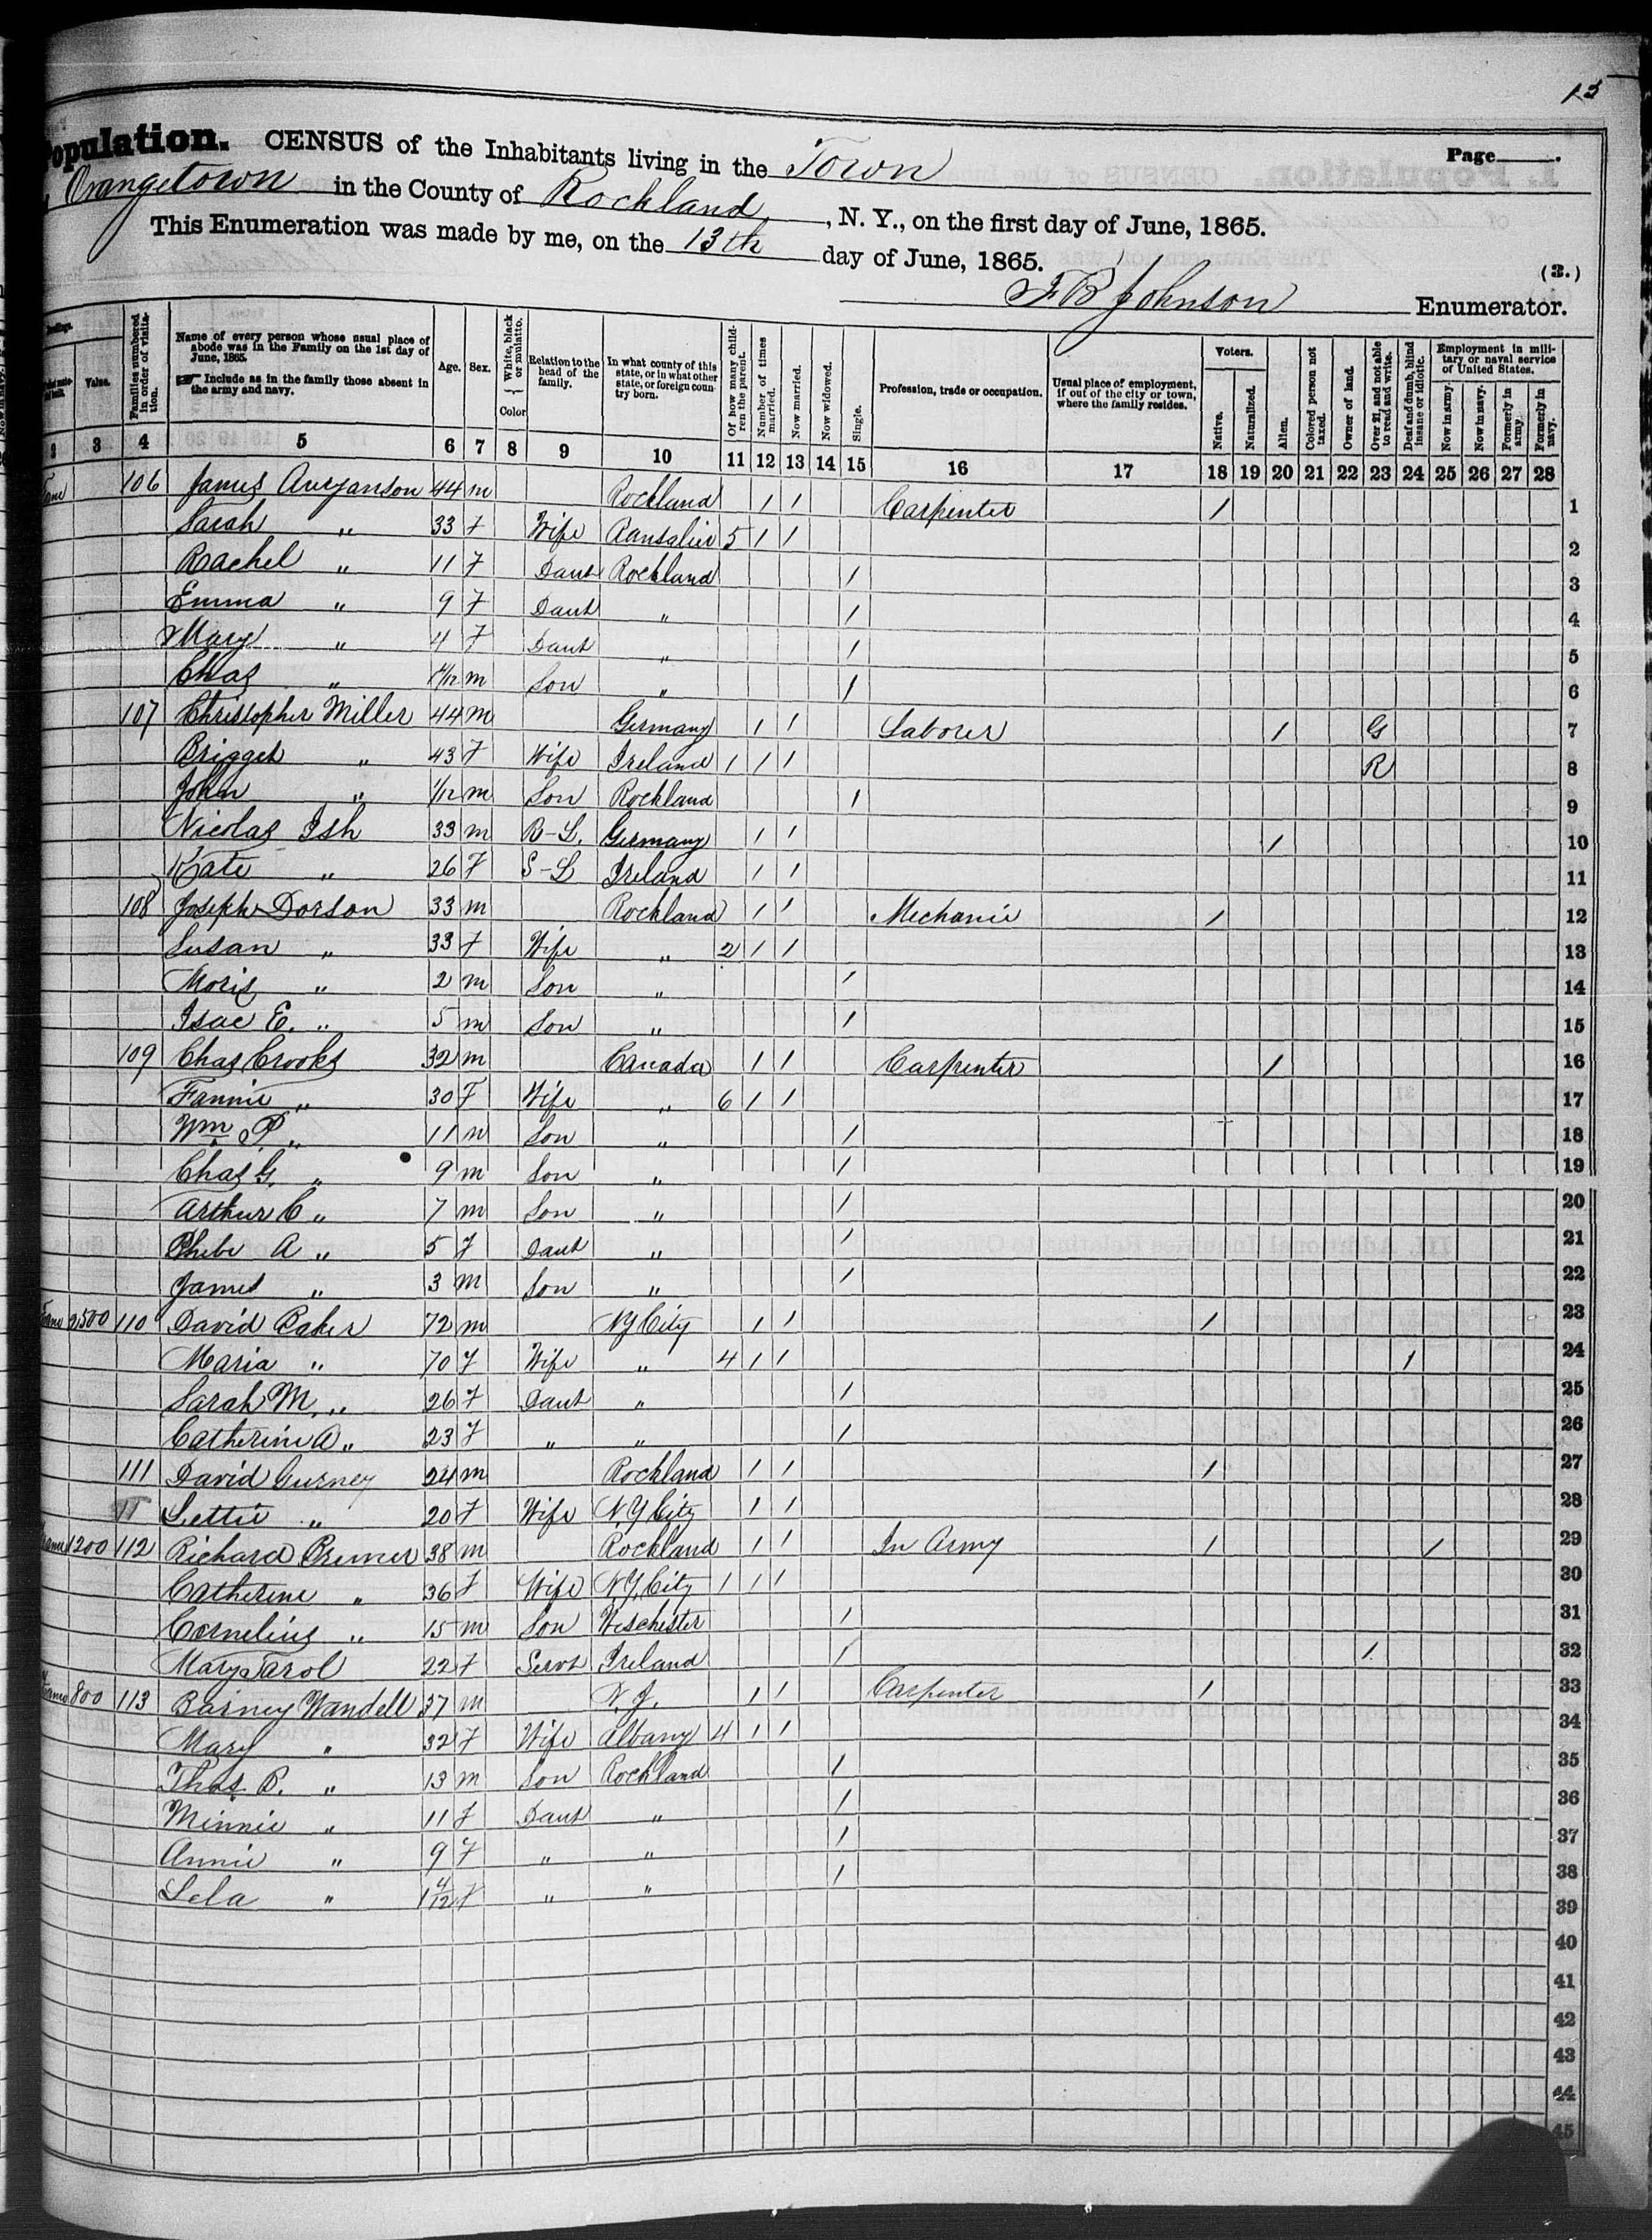 13
Population. CENSUS of the Inhabitants living in the Town Page
Orangetown in the County of Rockland, N. Y., on the first day of June, 1865.
This Enumeration was made by me, on the 13th day of June, 1865.
(3.)
F B Johnson Enumerator.
Value. Families numbered in order of visitation. Name of every person whose usual place of abode was in the Family on the 1st day of June, 1865. Include as in the family those absent in the army and navy. Age. Sex. White, black or mulatto. Color Relation to the head of the family. In what county of this state, or in what other state, or foreign country born. Of how many children the parent. Number of times married. Now married. Now widowed. Single. Profession, trade or occupation. Usual place of employment, if out of the city or town, where the family resides. Voters. Native. Naturalized. Alien. Colored person not taxed. Owner of land. Over 21, and not able to read and write. Deaf and dumb, blind insane or idiotic. Employment in military or naval service of United States. Now in army. Now in navy. Formerly in army. Formerly in navy.
2 3 4 5 6 7 8 9 10 11 12 13 14 15 16 17 18 19 20 21 22 23 24 25 26 27 28
106 James Auryanson 44 m Rockland 1 1 Carpenter 1 1
Sarah " 33 F Wife Ransalier 5 1 1 2
Rachel " 11 F Daut Rockland 1 3
Emma " 9 F Daut " 1 4
Mary " 4 F Daut " 1 5
Chas " m Son " 1 6
107 Christopher Miller 44 m Germany 1 1 Laborer 1 G 7
Brigget " 43 F Wife Ireland 1 1 1 R 8
John " 1/12 m Son Rockland 1 9
Nicolas Ish 33 m B-L. Germany 1 1 1 10
Kate " 26 F S-L Ireland 1 1 11
108 Joseph Dorson 33 m Rockland 1 1 Mechanic 1 12
Susan " 33 F Wife " 2 1 1 13
Moris " 2 m Son " 1 14
Isac E. " 5 m Son " 1 15
109 Chas Crooks 32 m Canada 1 1 Carpenter 1 16
Fannie " 30 F Wife " 6 1 1 17
Wm P " 11 m Son " 1 18
Chas G. " 9 m Son " 1 19
Arthur C " 7 m Son " 1 20
Phebe A " 5 F Daut " 1 21
James " 3 m Son " 1 22
2500 110 David Baker 72 m NY City 1 1 1 23
Maria " 70 F Wife " 4 1 1 1 24
Sarah M. " 26 F Daut " 1 25
Catherine A " 23 F " " 1 26
111 David Gurney 24 m Rockland 1 1 1 27
Lettie " 20 F Wife N.Y City 1 1 28
1200 112 Richard Premer 38 m Rockland 1 1 In Army 1 1 29
Catherine " 36 F Wife N.Y. City 1 1 1 30
Cornelius " 15 m Son Weschester 1 31
Mary Tarol 22 F Servt Ireland 1 1 32
800 113 Barney Wandell 37 m N. J. 1 1 Carpenter 1 33
Mary " 32 F Wife Albany 4 1 1 34
Thos. B. " 13 m Son Rockland 1 35
Minnie " 11 F Daut " 1 36
Annie " 9 F " " 1 37
Lela " 1 4/12 F " " 1 38
39
40
41
42
43
44
45